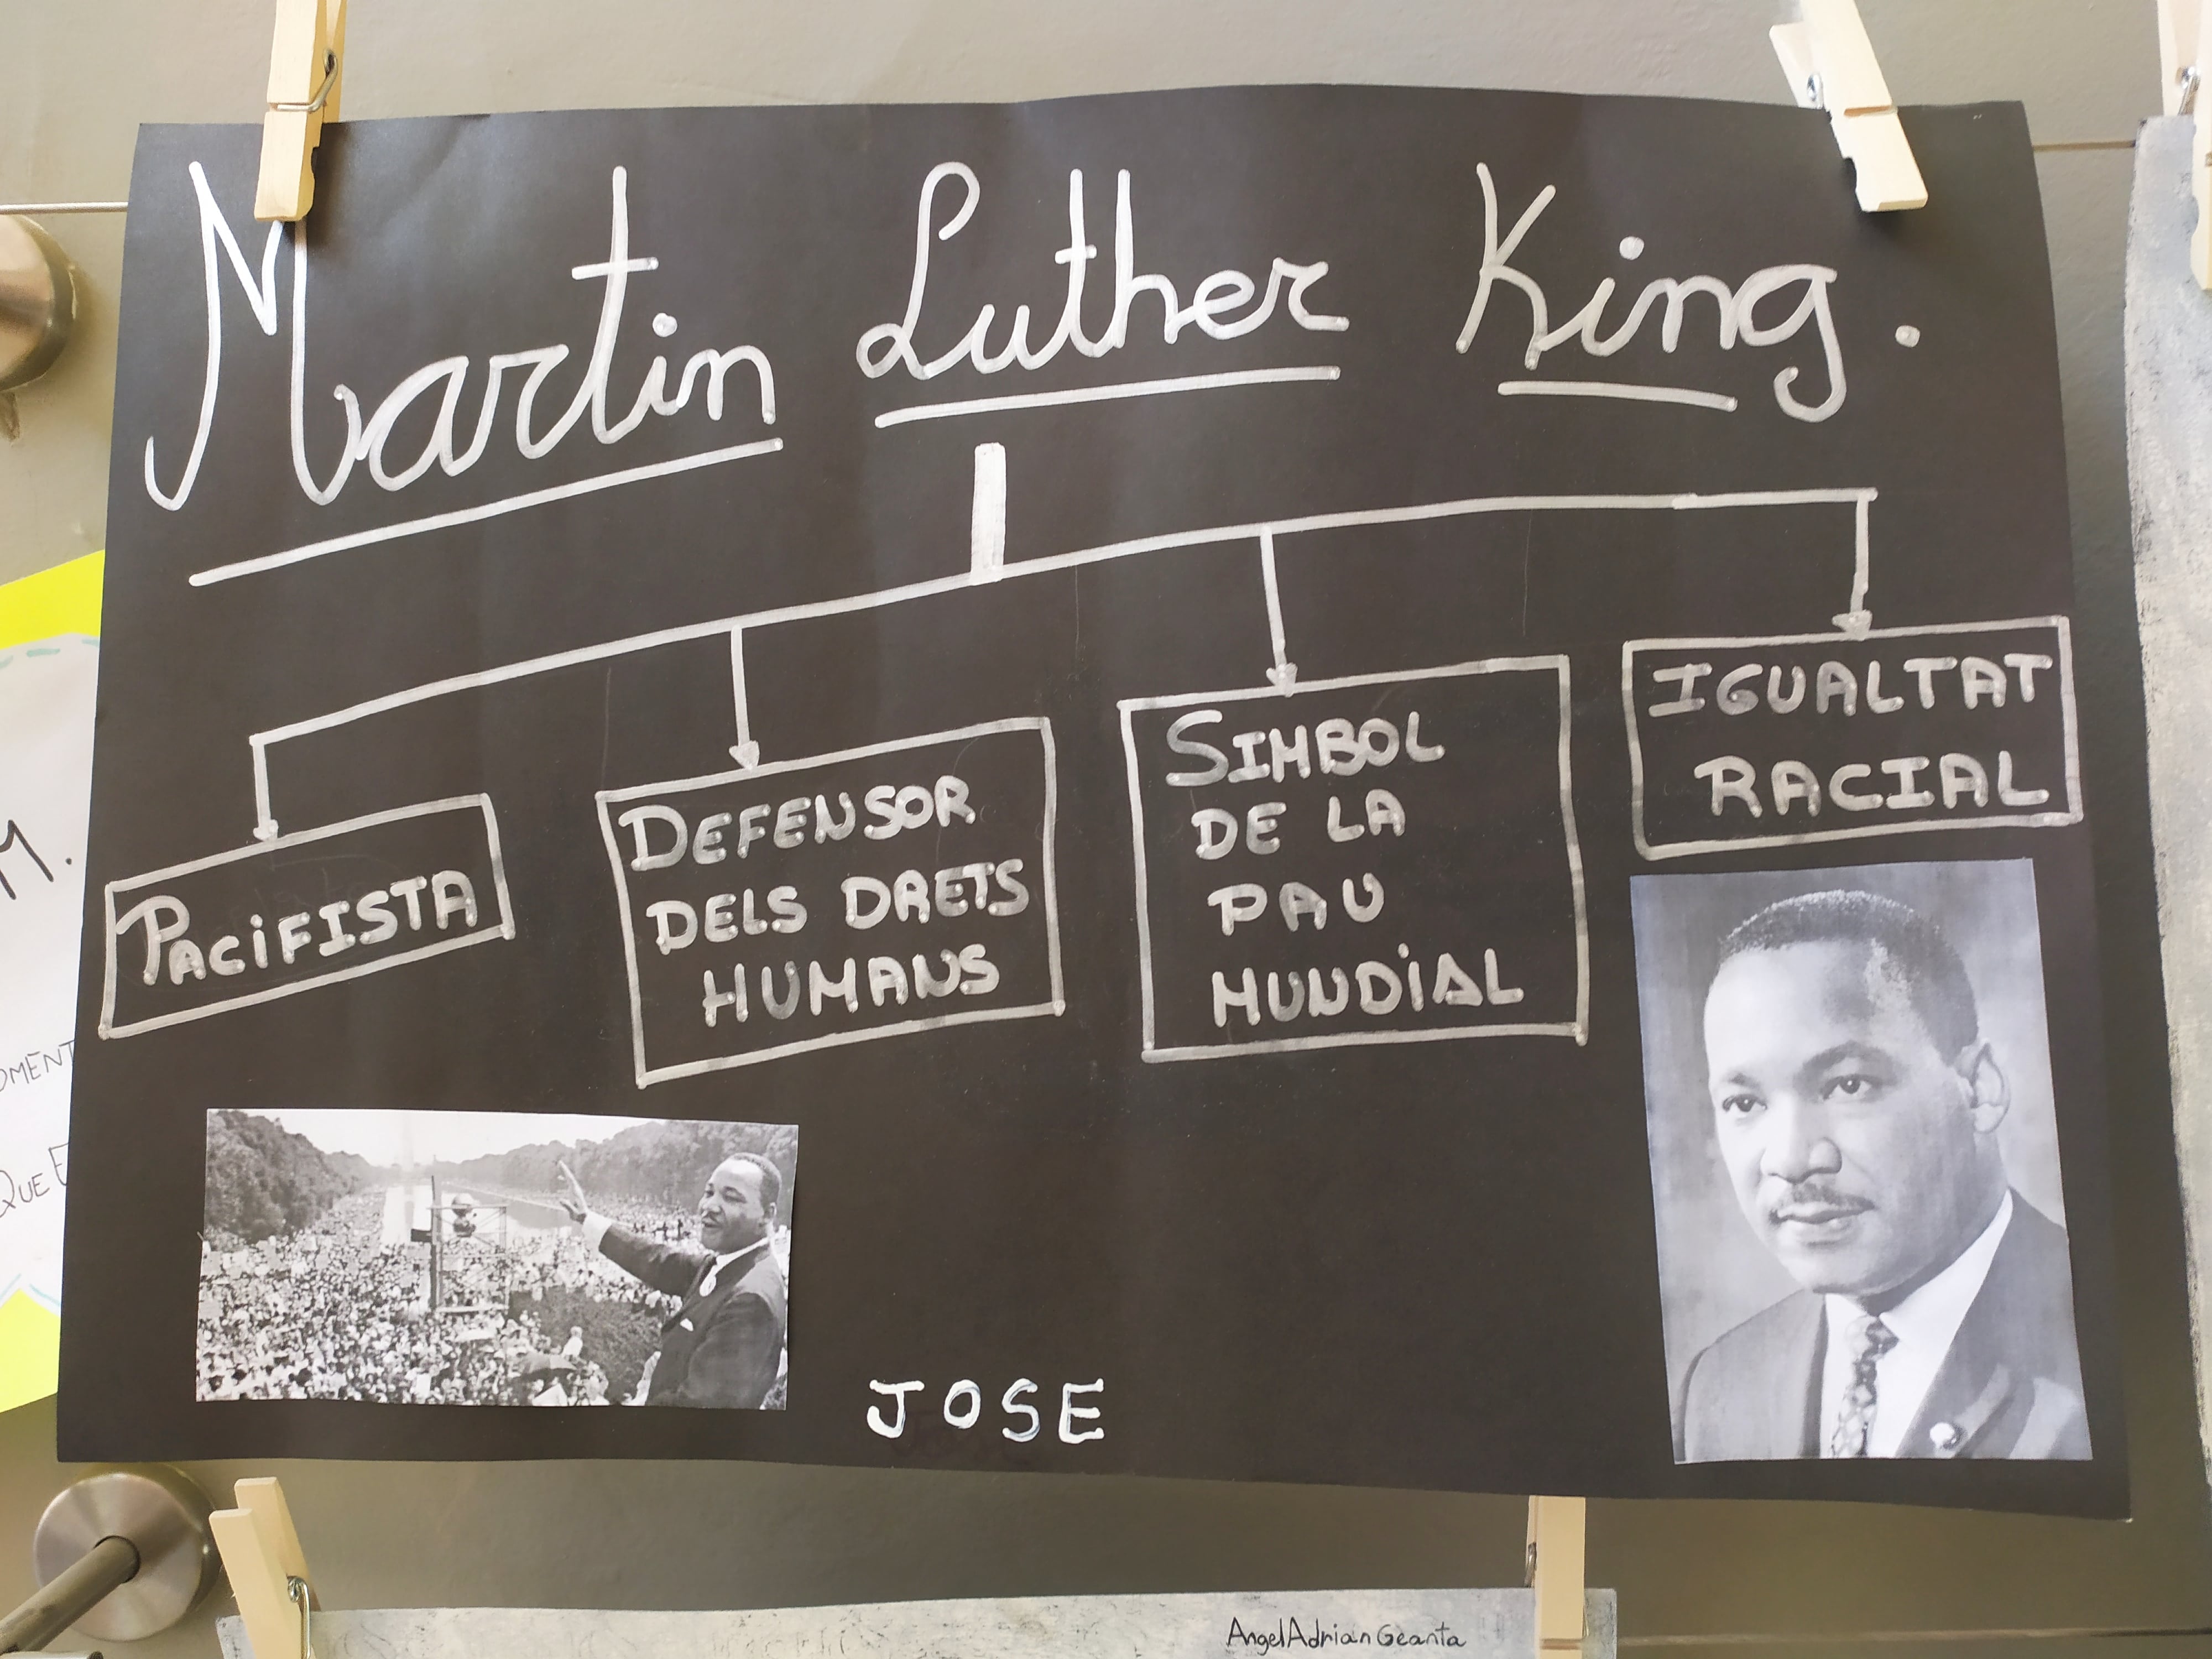 Martin Luther King.
PACiFISTA
DEFENSOR
DELS DRETS
HUMANS
SIMBOL
DE LA
PAU
MUNDiAL
IGUALTAT
RACIAL
JOSE
M.
QUE
AngelAdrianGeanta